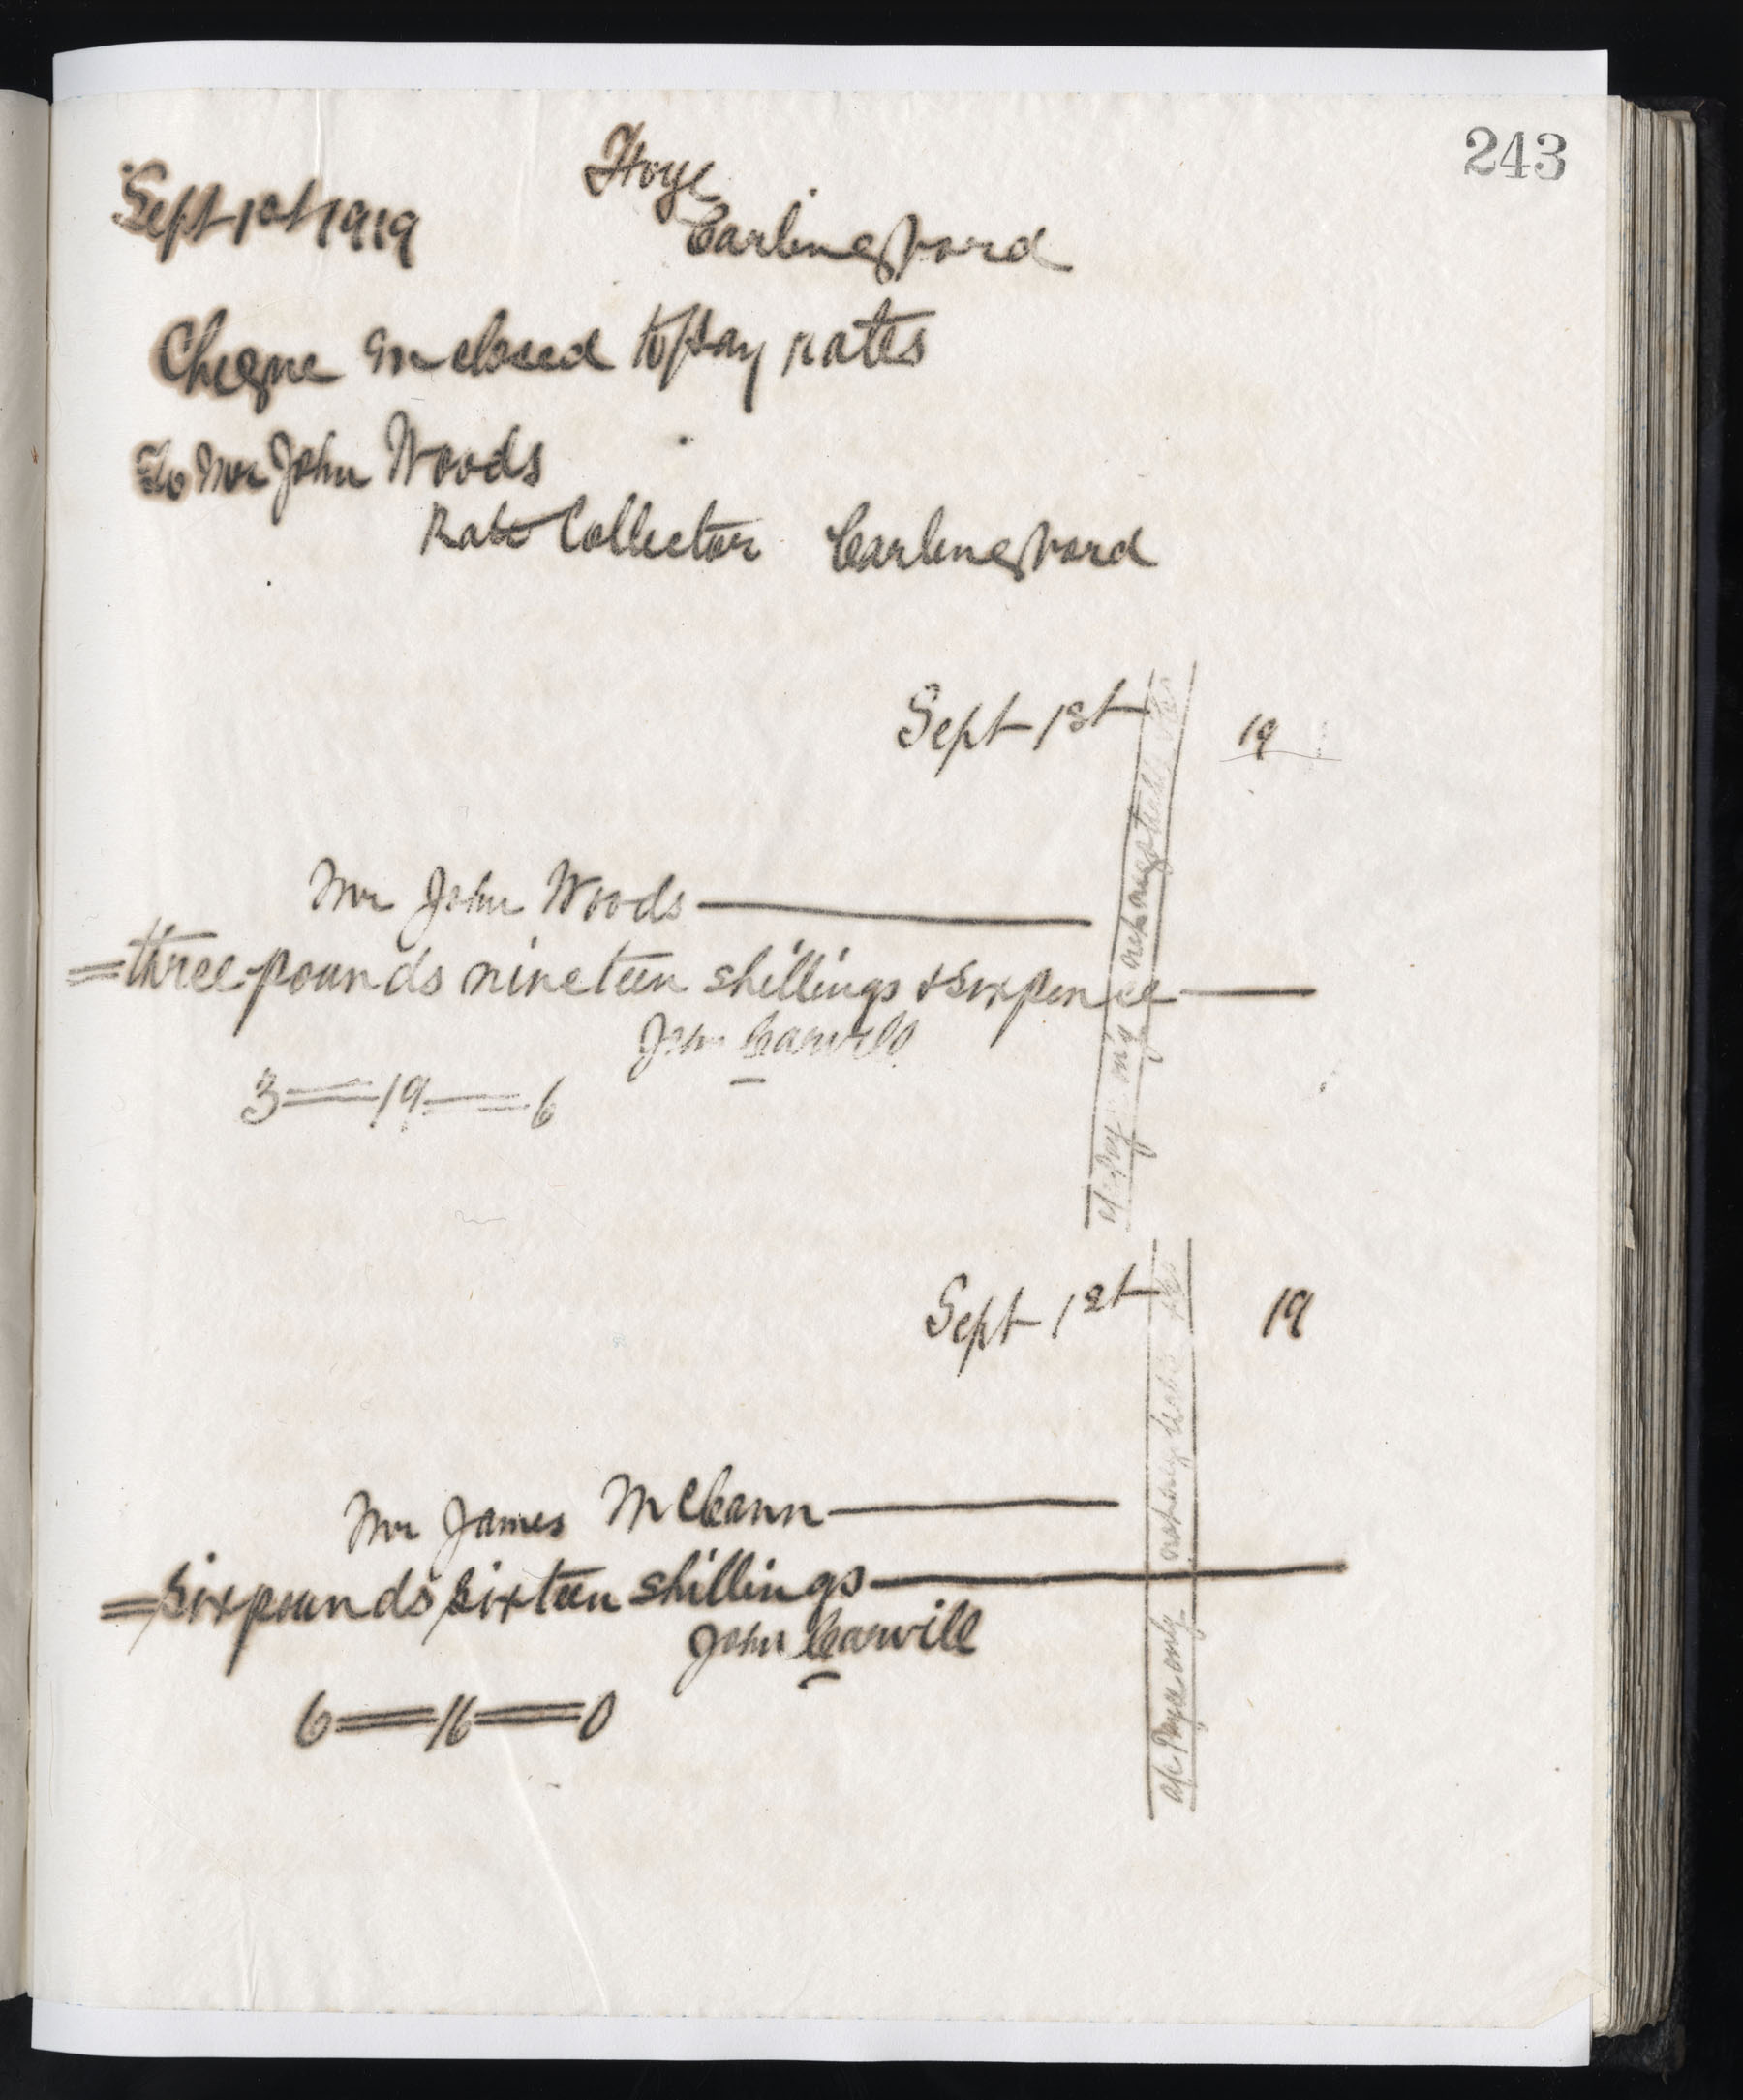 243
Sept 1st 1919
Carlingford
Cheque Enclosed to pay rates
To Mr John Woods
Rate Collector Carlingford
Sept 1st 19
Mr John Woods
=three pounds nineteen shillings & sixpence
John Carvill
3=19=6
a/c Payee only not negotiable
Sept 1st 19
Mr James McCann
=six pounds sixteen shillings
John Carvill
6=16=0
a/c Payee only not negotiable